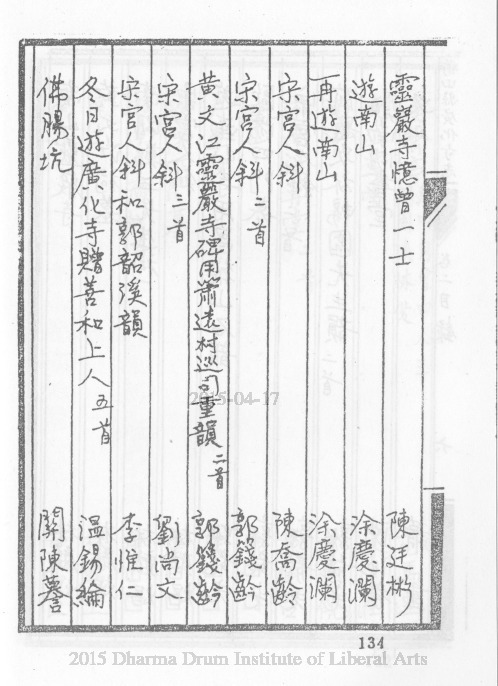 靈巖寺憶曾一士 陳廷彬
遊南山 涂慶瀾
再遊南山 涂慶瀾
宋宮人斜 陳喬齡
宋宮人斜 二首 郭籛齡
黃文江靈巖寺碑用蕭遠村巡司重韻 二首 郭籛齡
宋宮人斜 三首 劉尚文
宋宮人斜和郭韶溪韻 李惟仁
冬日遊廣化寺贈善和上人 五首 溫錫綸
佛腸坑 關陳謩
134
2015-04-17
2015 Dharma Drum Institute of Liberal Arts